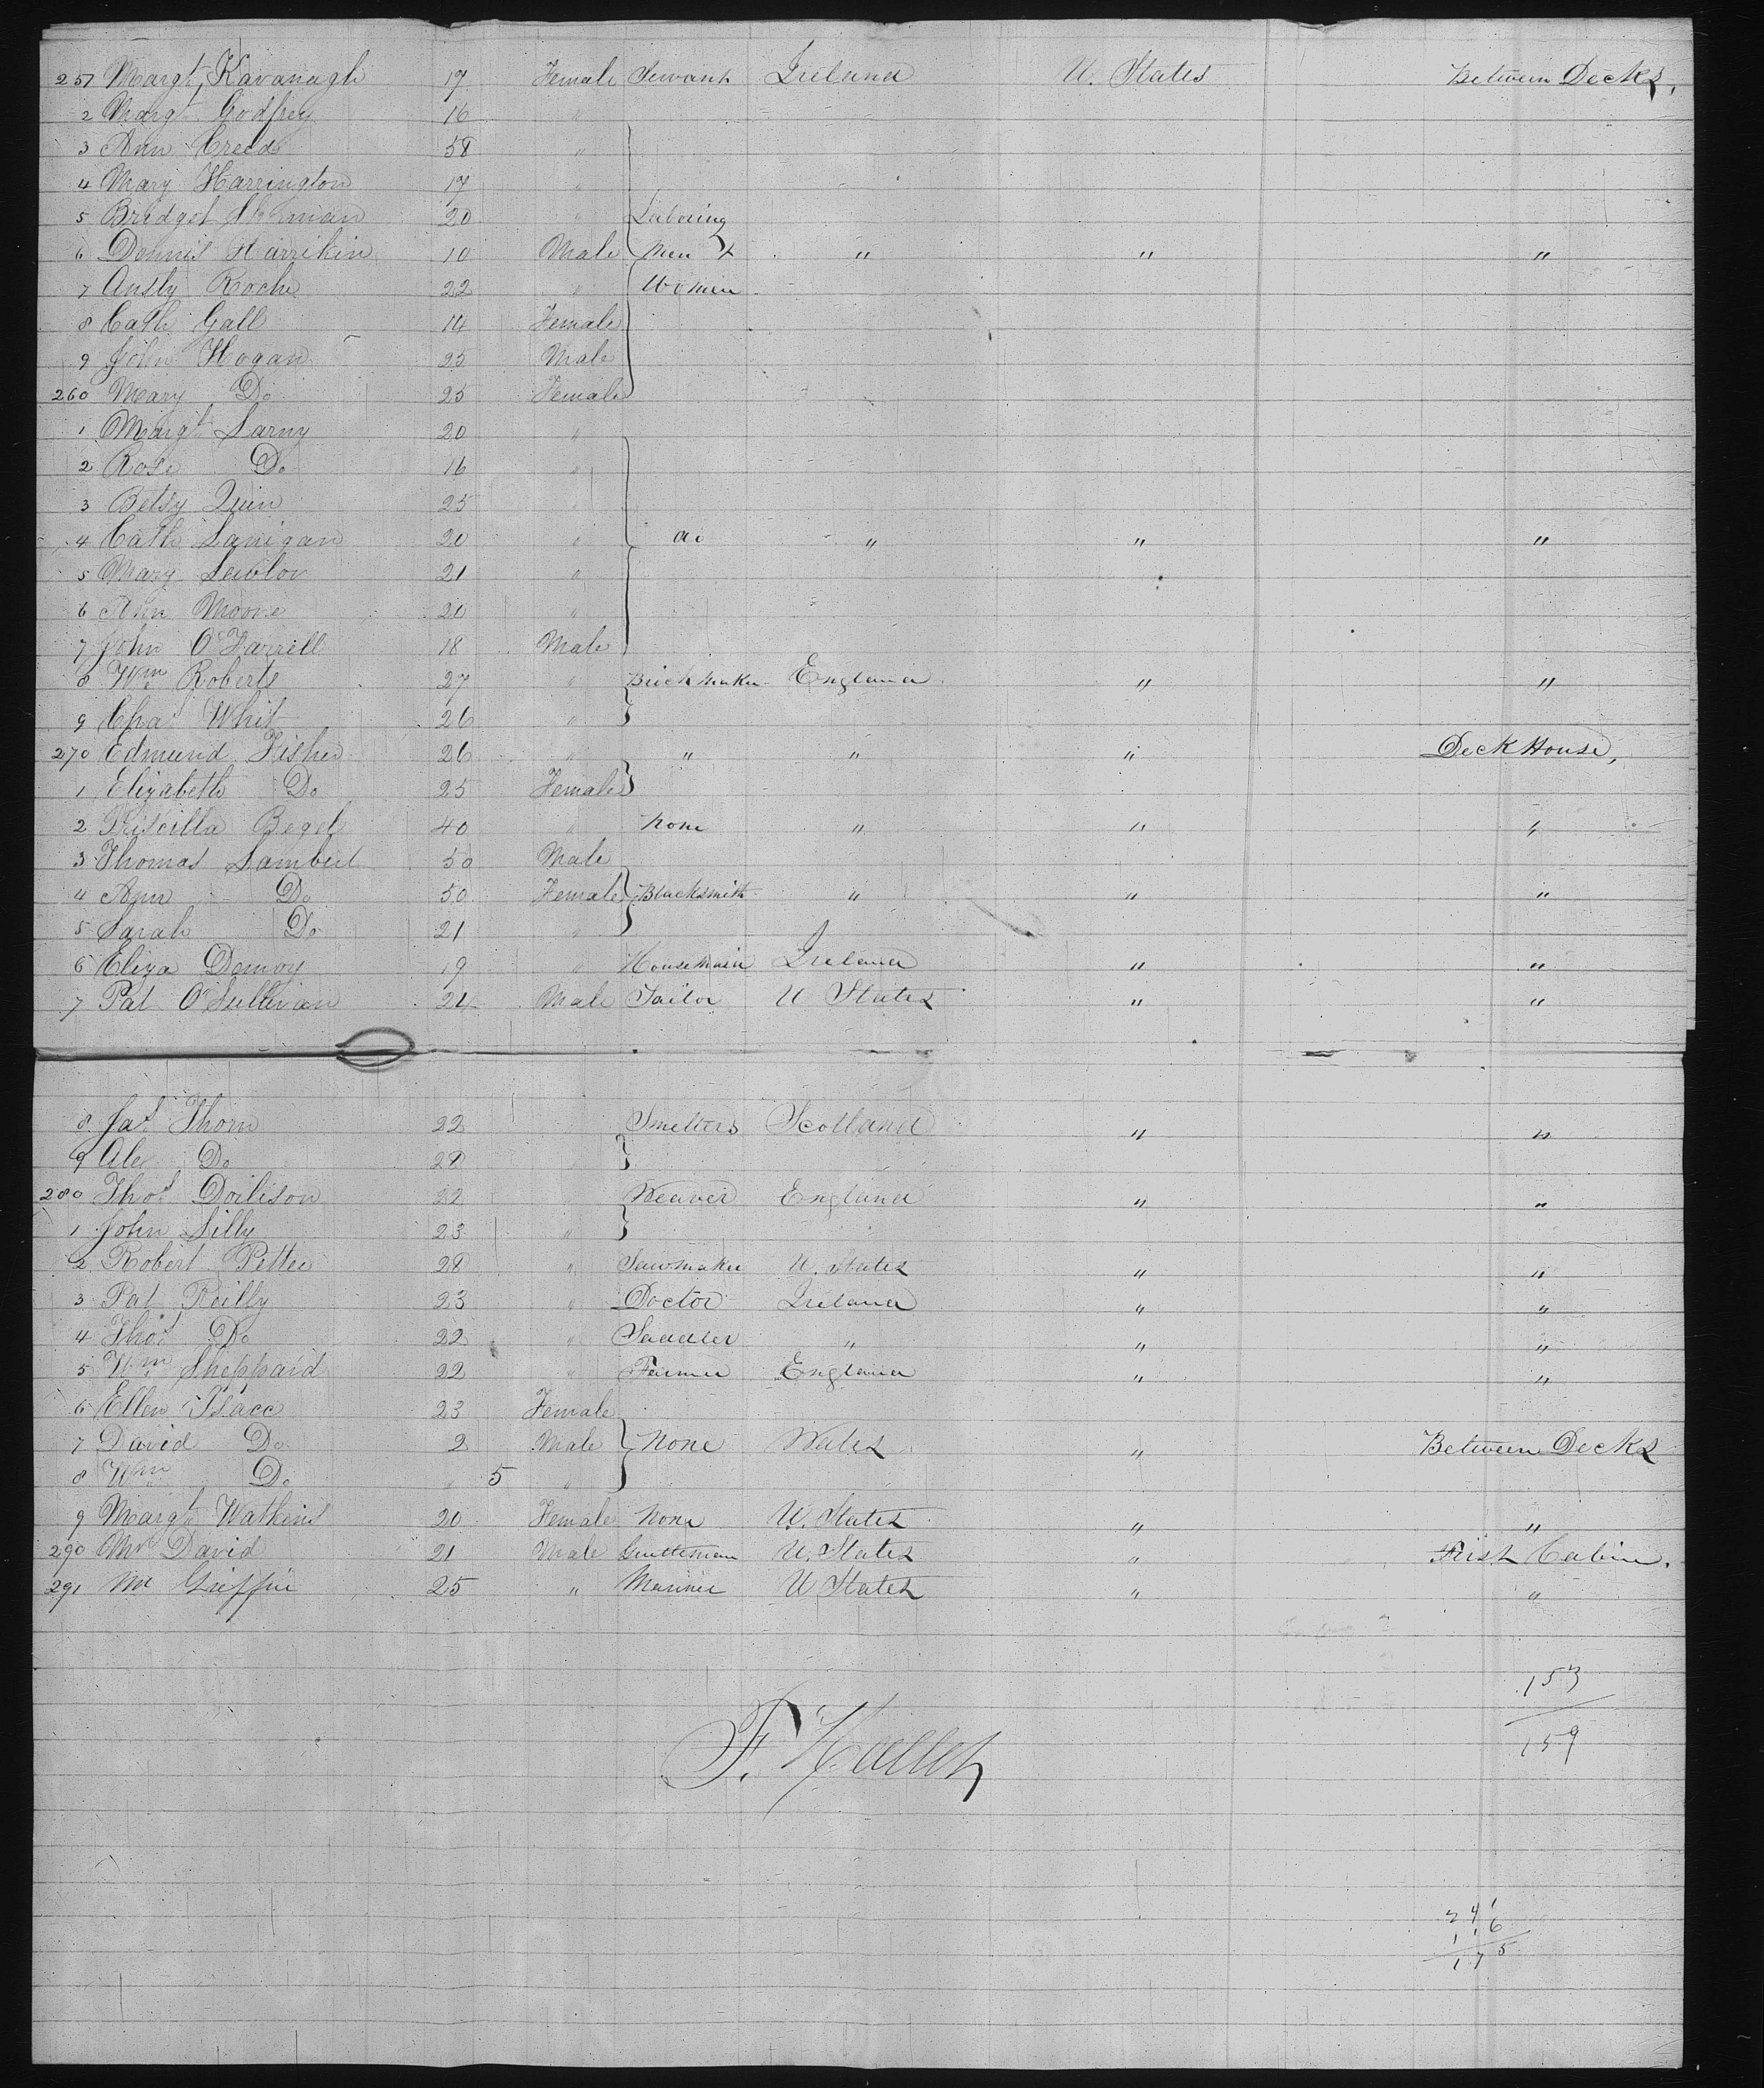 251 Margt. Kavanagh 17 Female Servant Ireland U. States Between Decks,
2 Margt Godfrey 16 "
3 Ann Creed 58 "
4 Mary Harrington 17 "
5 Bridget 20 " Laboring
6 Dennis Harrikin 10 Male Men & " " "
7 Ansty Roche 22 " Women
8 Cath Gall 14 Female
9 John Hogan 25 Male
260 Mary Do 25 Female
1 Margt Larny 20 "
2 Rose Do 16 "
3 Betsy Quin 25 "
4 Cath Lanigan 20 " do " " "
5 Mary 21 "
6 Ann Moore 20 "
7 John O'Farrell 18 Male
8 Wm Roberts 27 " Brickmaker England " "
9 Chas Whit 26 "
270 Edmund Fisher 26 " " " " Deck House,
1 Elizabeth Do 25 Female
2 Priscilla Begel 40 " None " " "
3 Thomas Lambert 50 Male
4 Ann Do 50 Female Blacksmith " " "
5 Sarah Do 21 "
6 Eliza Demoy 19 " Housemaid Ireland " "
7 Pat O'Sullivan 21 Male Tailor U States " "
8 Jas Thom 22 Smelters Scotland " "
9 Alex Do 28 "
280 Thos Doilison 22 Weaver England " "
1 John Lilly 23 "
2 Robert Pettee 28 " Sawmaker U. States " "
3 Pat Reilly 23 " Doctor Ireland " "
4 Thos Do 22 " Saddler " " "
5 Wm Sheppard 22 " Farmer England " "
6 Ellen Isacc 23 Female
7 David Do 2 Male None Wales " Between Decks
8 Wm Do " 5 "
9 Margt Watkins 20 Female None U. States " "
290 Mr David 21 Male Gentleman U. States " First Cabin.
291 Mr Griffin 25 " Mariner U States " "
153
159
F. Hallet
241
116
175